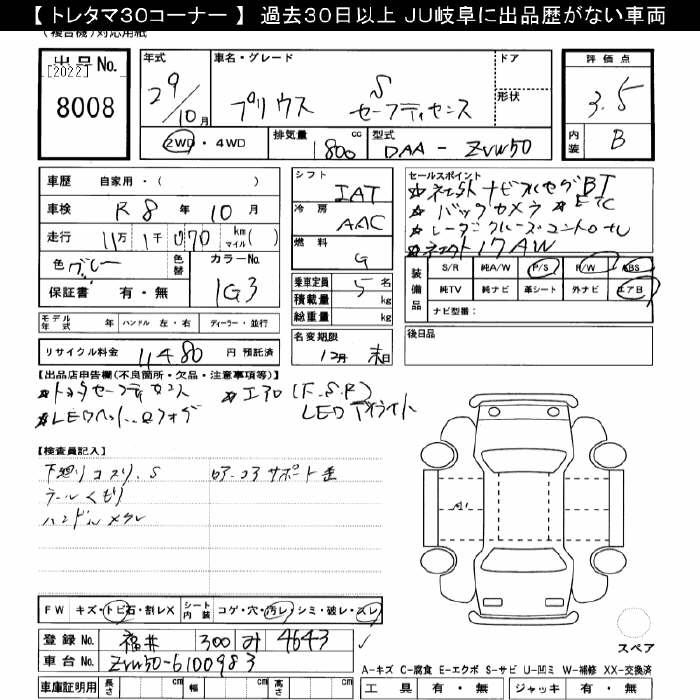 【 トレタマ30コーナー 】 過去30日以上 JU岐阜に出品歴がない車両
(複合機)対応用紙
出品No.
[2022]
8008
年式
29/10月
車名・グレード
プリウス S セーフティセンス
ドア
形状
評価点
3.5
内装
B
2WD・4WD
排気量
1800 cc
型式
DAA - ZVW50
車歴 自家用・( )
車検 R8年10月
走行 11万1千070 km マイル( )
色 グレー
色替
カラーNo.
1G3
保証書 有・無
シフト
IAT
冷房
AAC
燃料
G
乗車定員 5名
積載量 kg
総重量 kg
セールスポイント
ナビフルセグBT
★バックカメラ ★ETC
★レーダークルーズコントロール
17AW
装備品
S/R 純A/W P/S R/W ABS
純TV 純ナビ 革シート 外ナビ エアB
ナビ型番:
モデル年式 年 ハンドル 左・右 ディーラー・並行
名変期限
12月 末日
後日品
リサイクル料金 11480 円 預託済
【出品店申告欄(不良箇所・欠品・注意事項等)】
★トヨタセーフティセンス ★エアロ(F.S.R)
★LEDヘッド
【検査員記入】
下廻りコスリ、S
コアサポート歪
ルールくもり
ハンドルスレ
A1
FW キズ・トビ石・割レX
シート内装 コゲ・穴・汚レ・シミ・破レ・スレ
登録No. 福井 300 み 4643
車台No. ZVW50-6100983
スペア
A-キズ C-腐食 E-エクボ S-サビ U-凹ミ W-補修 XX-交換済
車庫証明用 長さ cm 幅 cm 高さ cm
工具 有・無 ジャッキ 有・無